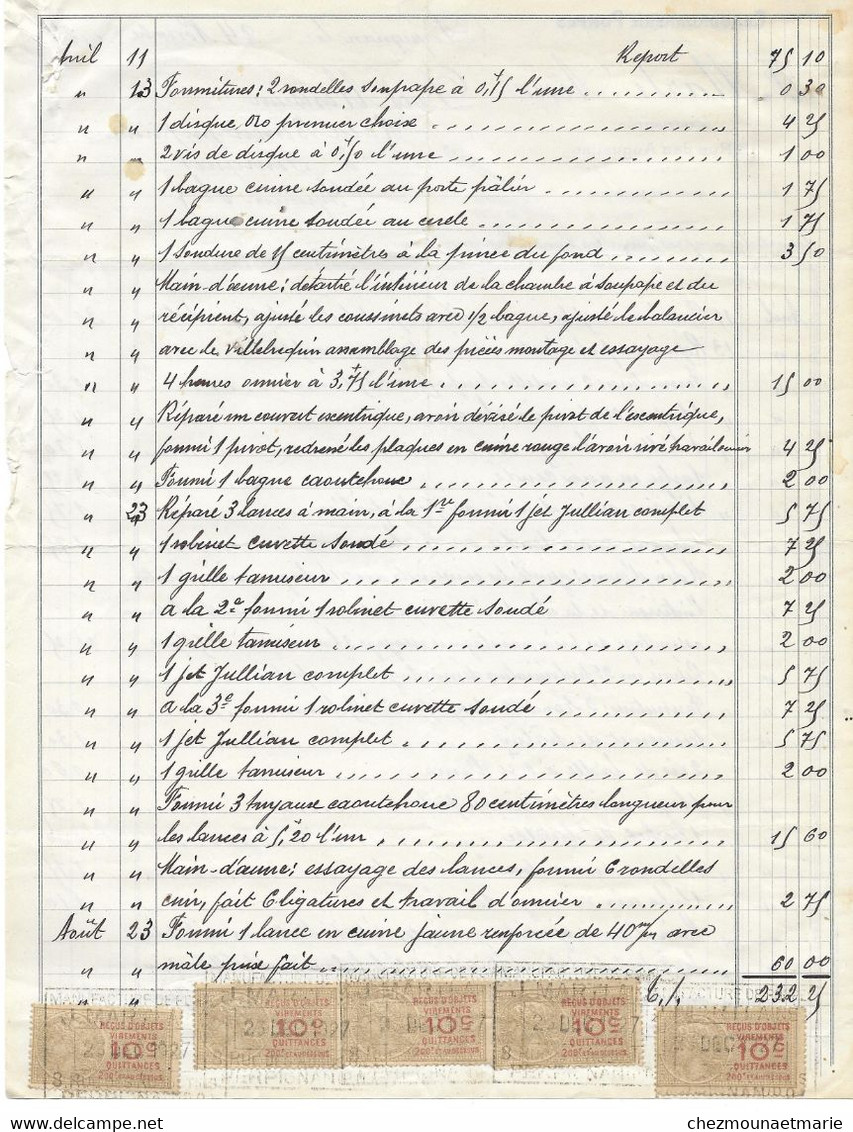 Avril 11 Report 75 10
" 13 Fournitures: 2 rondelles soupape à 0,15 l'une 0 30
" " 1 disque, 020 premier choix 4 25
" " 2 vis de disque à 0,50 l'une 1 00
" " 1 bague cuivre soudée au porte pâlier 1 75
" " 1 bague cuivre soudée au cercle 1 75
" " 1 soudure de 15 centimètres à la pince du fond 3 50
" " Main-d'œuvre: détartré l'intérieur de la chambre à soupape et du
" " récipient, ajusté les coussinets avec 1/2 bague, ajusté le balancier
" " avec le villebrequin assemblage des pièces montage et essayage
" " 4 heures ouvrier à 3,75 l'une 15 00
" " Réparé un couvert excentrique, avoir dévissé le pivot de l'excentrique,
" " fourni 1 pivot, redressé les plaques en cuivre rouge l'avoir rivé travail ouvrier 4 25
" " Fourni 1 bague caoutchouc 2 00
" 23 Réparé 3 lances à main, à la 1re fourni 1 jet Jullian complet 5 75
" " 1 robinet cuvette soudé 7 25
" " 1 grille tamiseur 2 00
" " a la 2e fourni 1 robinet cuvette soudé 7 25
" " 1 grille tamiseur 2 00
" " 1 jet Jullian complet 5 75
" " a la 3e fourni 1 robinet cuvette soudé 7 25
" " 1 jet Jullian complet 5 75
" " 1 grille tamiseur 2 00
" " Fourni 3 tuyaux caoutchouc 80 centimètres longueur pour
" " les lances à 5,20 l'un 15 60
" " Main-d'œuvre: essayage des lances, fourni 6 rondelles
" " cuir, fait 6 ligatures et travail d'ouvrier 2 75
Août 23 Fourni 1 lance en cuivre jaune renforcée de 40 m/m avec
" " mâle prix fait 60 00
" " 232 25
MANUFACTURE DE
REÇUS D'OBJETS
VIREMENTS
10c
QUITTANCES
200f ET AU DESSOUS
REÇUS D'OBJETS
VIREMENTS
10c
QUITTANCES
200f ET AU DESSOUS
REÇUS D'OBJETS
VIREMENTS
10c
QUITTANCES
200f ET AU DESSOUS
REÇUS D'OBJETS
VIREMENTS
10c
QUITTANCES
200f ET AU DESSOUS
REÇUS D'OBJETS
VIREMENTS
10c
QUITTANCES
200f ET AU DESSOUS
PERPIGNAN
chezmounaetmarie